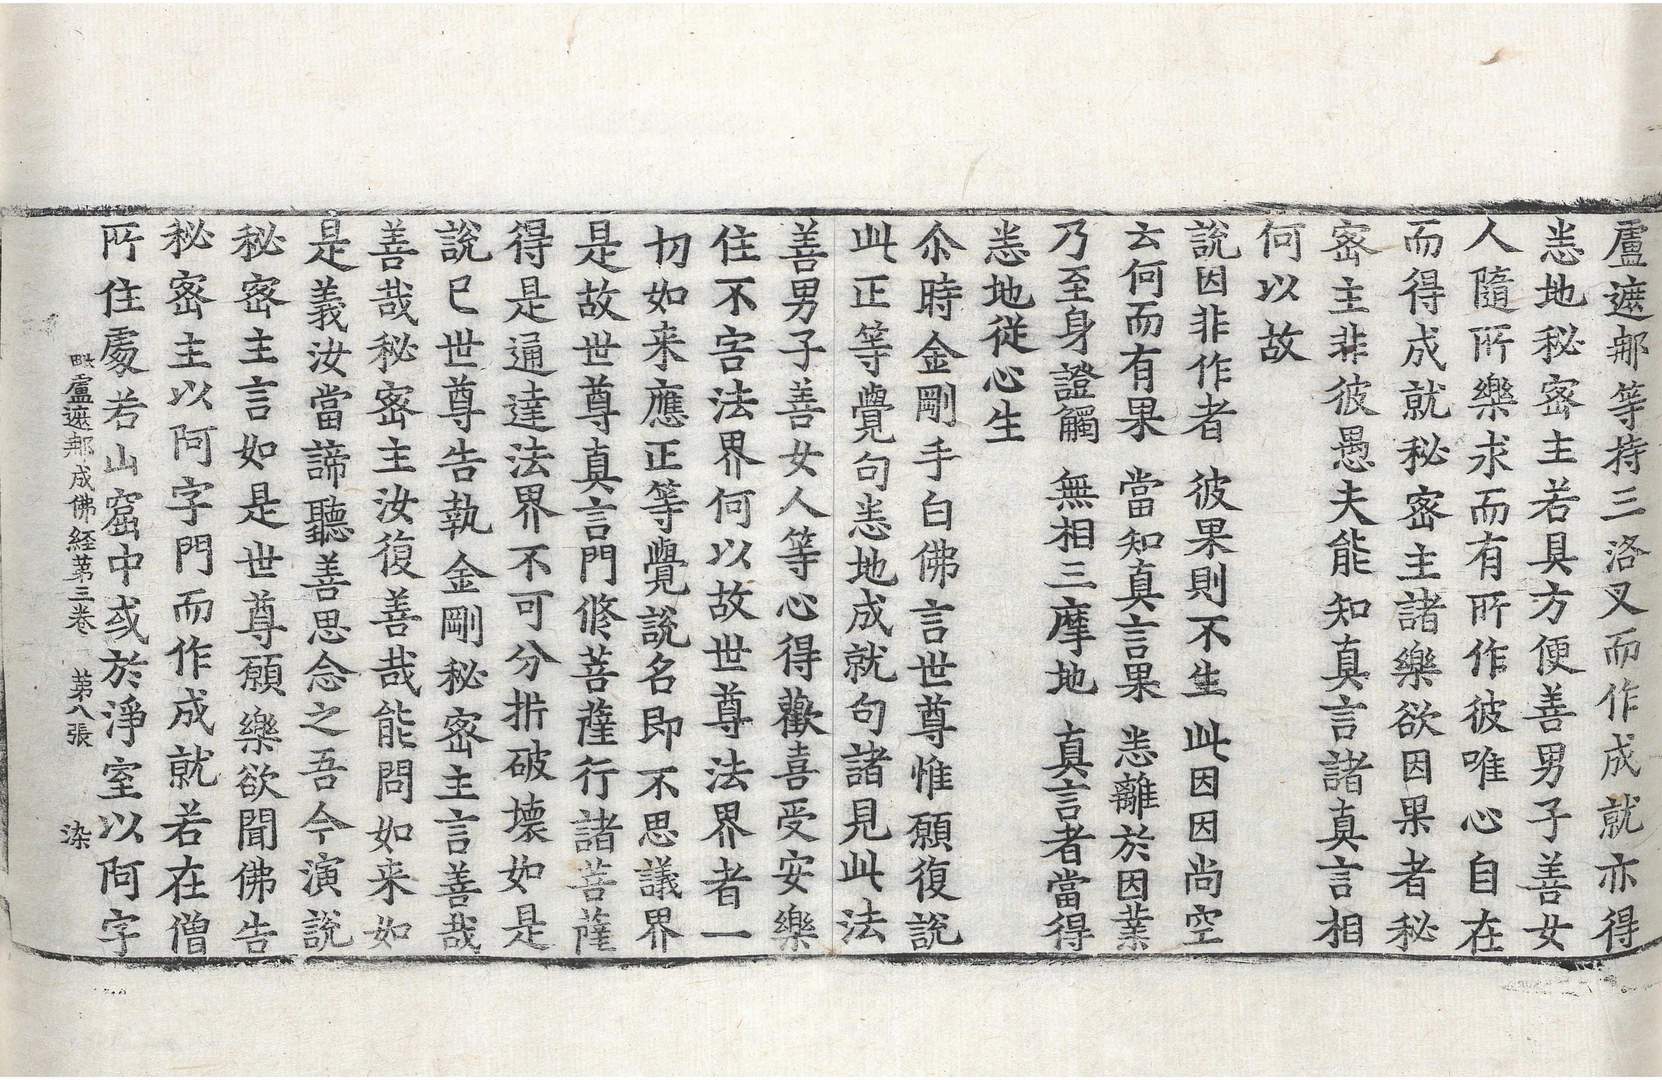 盧遮那等持三洛叉而作成就亦得
悉地秘密主若具方便善男子善女
人隨所樂求而有所作彼唯心自在
而得成就秘密主諸樂欲因果者秘
密主非彼愚夫能知真言諸真言相
何以故
說因非作者 彼果則不生 此因因尚空
云何而有果 當知真言果 悉離於因業
乃至身證觸 無相三摩地 真言者當得
悉地從心生
尒時金剛手白佛言世尊惟願復說
此正等覺句悉地成就句諸見此法
善男子善女人等心得歡喜受安樂
住不害法界何以故世尊法界者一
切如来應正等覺說名即不思議界
是故世尊真言門修菩薩行諸菩薩
得是通達法界不可分折破壞如是
說已世尊告執金剛秘密主言善哉
善哉秘密主汝復善哉能問如来如
是義汝當諦聽善思念之吾今演說
秘密主言如是世尊願樂欲聞佛告
秘密主以阿字門而作成就若在僧
所住處若山窟中或於淨室以阿字
毗盧遮那成佛経第三卷 第八張 染